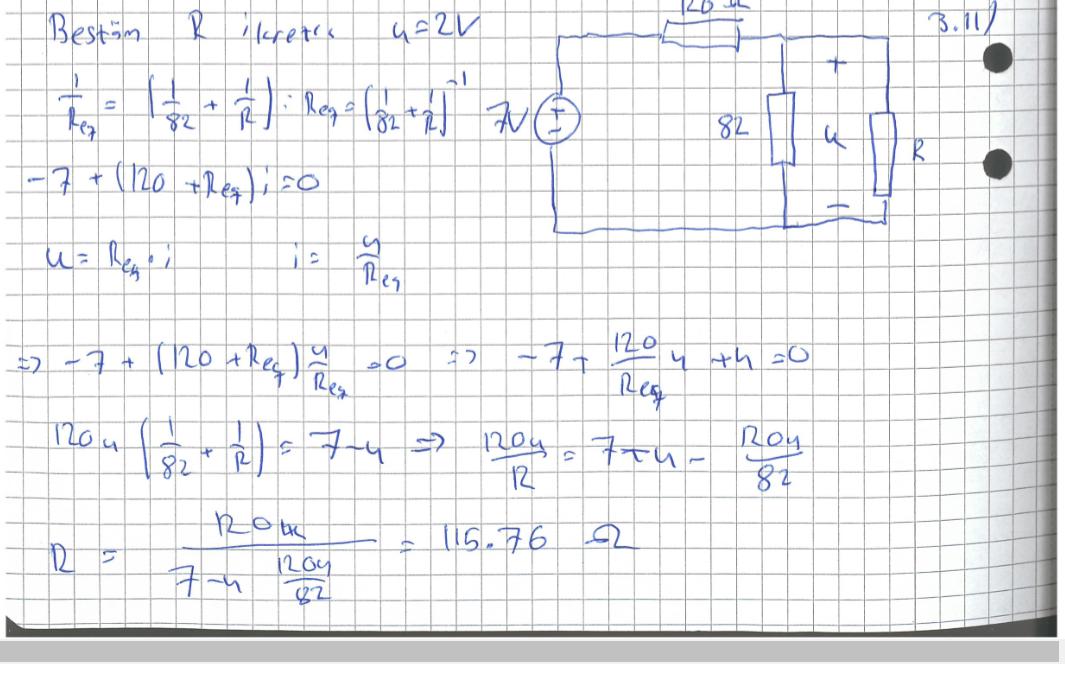 Bestäm R i kretsen u=2V
3.11)
120 Ω
1/Req = (1/82 + 1/R) : Req = (1/82 + 1/R)^-1
7V
+
-
82
+
u
-
R
-7 + (120 + Req) i = 0
u = Req · i   i = u/Req
=> -7 + (120 + Req) u/Req = 0 => -7 + 120/Req u + u = 0
120u (1/82 + 1/R) = 7-u => 120u/R = 7-u - 120u/82
R = 120u / (7-u 120u/82) = 115.76 Ω